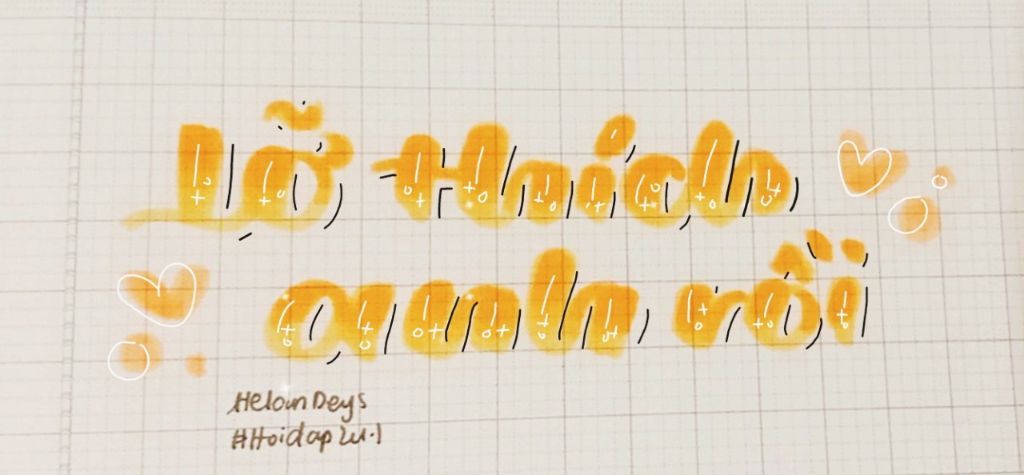 Lỡ thích
anh rồi
HeloinDeys
#Hoidap2u.1